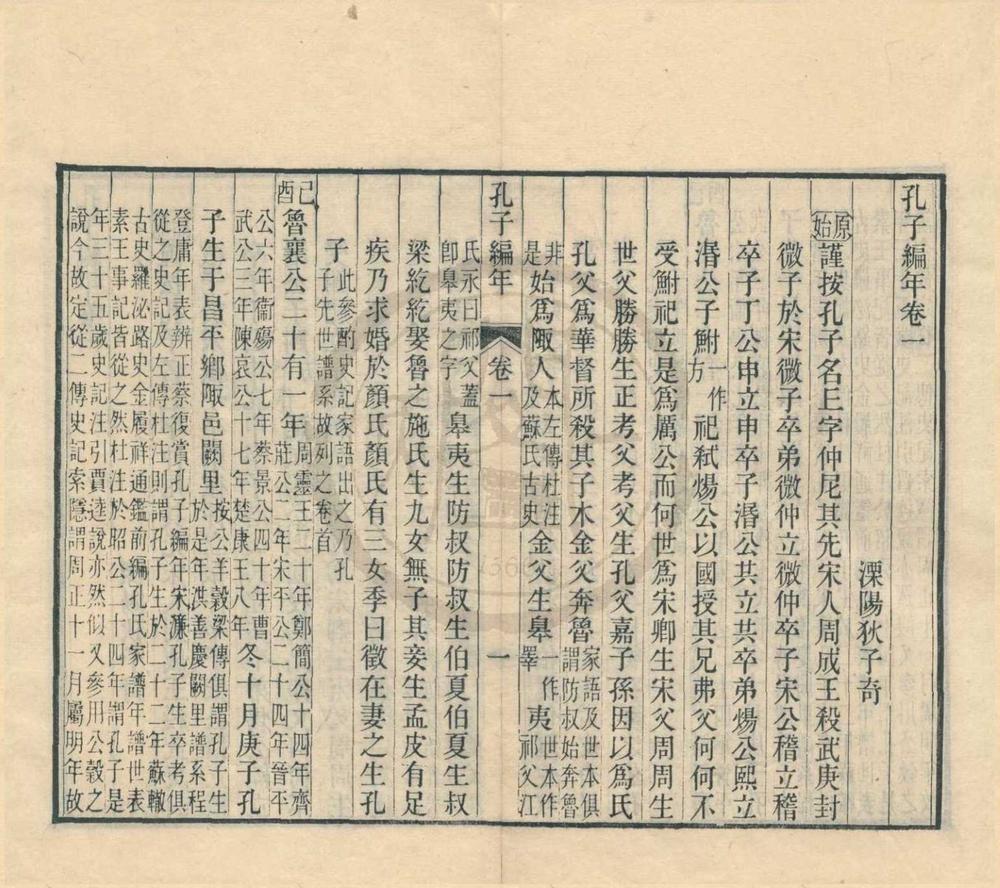 孔子編年卷一
溧陽狄子奇
原始 謹按孔子名丘字仲尼其先宋人周成王殺武庚封
微子於宋微子卒弟微仲立微仲卒子宋公稽立稽
卒子丁公申立申卒子湣公共立共卒弟煬公熙立
湣公子鮒一作方祀弒煬公以國授其兄弗父何何不
受鮒祀立是為厲公而何世為宋卿生宋父周周生
世父勝勝生正考父考父生孔父嘉子孫因以為氏
孔父為華督所殺其子木金父奔魯家語及世本俱謂防叔始奔魯
非是始為陬人本左傳杜注及蘇氏古史金父生皐一作睪夷世本作祁父江
孔子編年 卷一 一
氏永曰祁父蓋卽皐夷之字皐夷生防叔防叔生伯夏伯夏生叔
梁紇紇娶魯之施氏生九女無子其妾生孟皮有足
疾乃求婚於顏氏顏氏有三女季曰徵在妻之生孔
子此參酌史記家語出之乃孔子先世譜系故列之卷首
己酉 魯襄公二十有一年周靈王二十年鄭簡公十四年齊莊公二年宋平公二十四年晉平
公六年衞殤公七年蔡景公四十年曹武公三年陳哀公十七年楚康王八年冬十月庚子孔
子生于昌平鄉陬邑闕里按公羊穀梁傳俱謂孔子生於是年洪善慶闕里譜系程
登庸年表辨正蔡復賞孔子編年宋濂孔子生卒考俱從之史記及左傳杜注則謂孔子生於二十二年蘇轍
古史羅泌路史金履祥通鑑前編孔氏家譜年譜世表素王事記皆從之然杜注於昭公二十四年謂孔子是
年三十五歲史記注引賈逵說亦然似又參用公穀之說今故定從二傳史記索隱謂周正十一月屬明年故